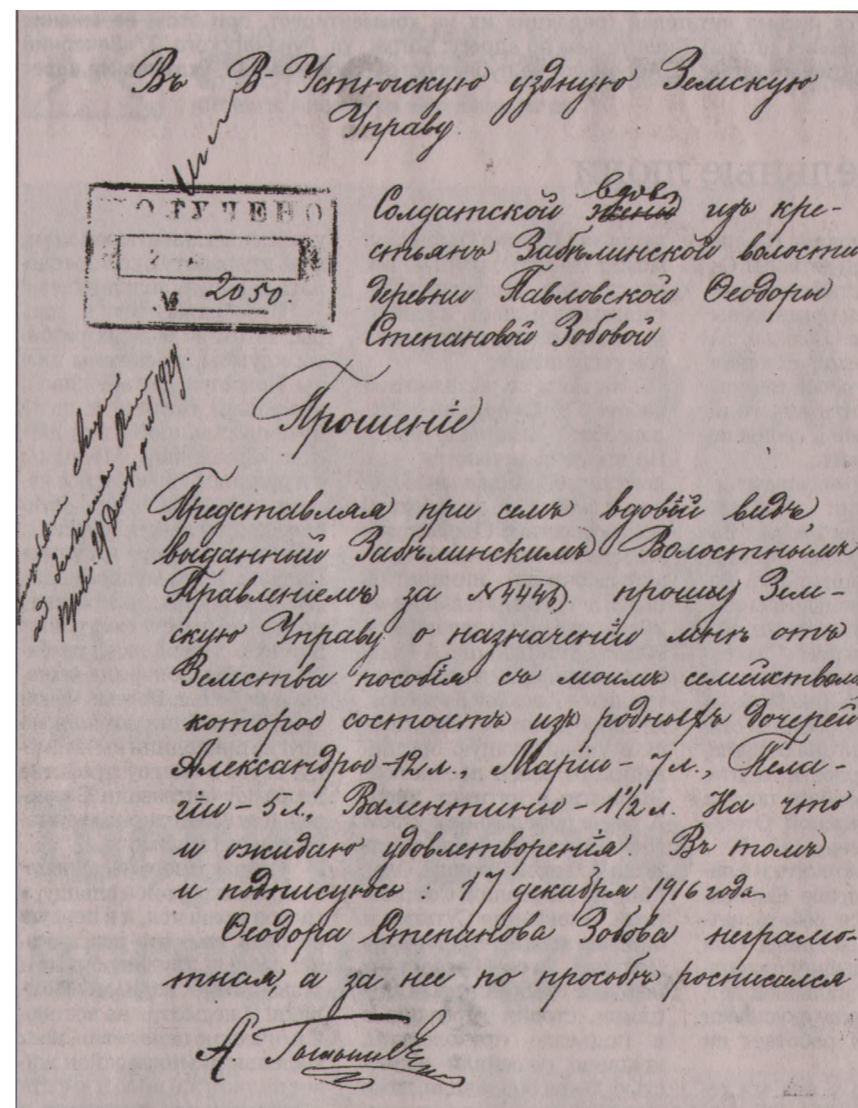 Въ В-Устюгскую уѣздную Земскую
Управу.
ПОЛУЧЕНО
№ 2050.
Солдатской вдовы жены изъ кре-
стьянъ Забѣлинской волости
деревни Павловской Ѳеодоры
Степановой Зобовой
Прошеніе
Представляя при семъ вдовій видъ,
выданный Забѣлинскимъ Волостнымъ
Правленіемъ за № 4446, прошу Зем-
скую Управу о назначеніи мнѣ отъ
Земства пособія съ моимъ семействомъ
которое состоитъ изъ родныхъ дочерей
Александры-12 л., Маріи-7 л., Пела-
гіи-5 л., Валентины-1 1/2 л. На что
и ожидаю удовлетворенія. Въ томъ
и подписуюсь: 17 декабря 1916 года
Ѳеодора Степанова Зобова неграмо-
тная, а за нее по просьбѣ росписался
А.